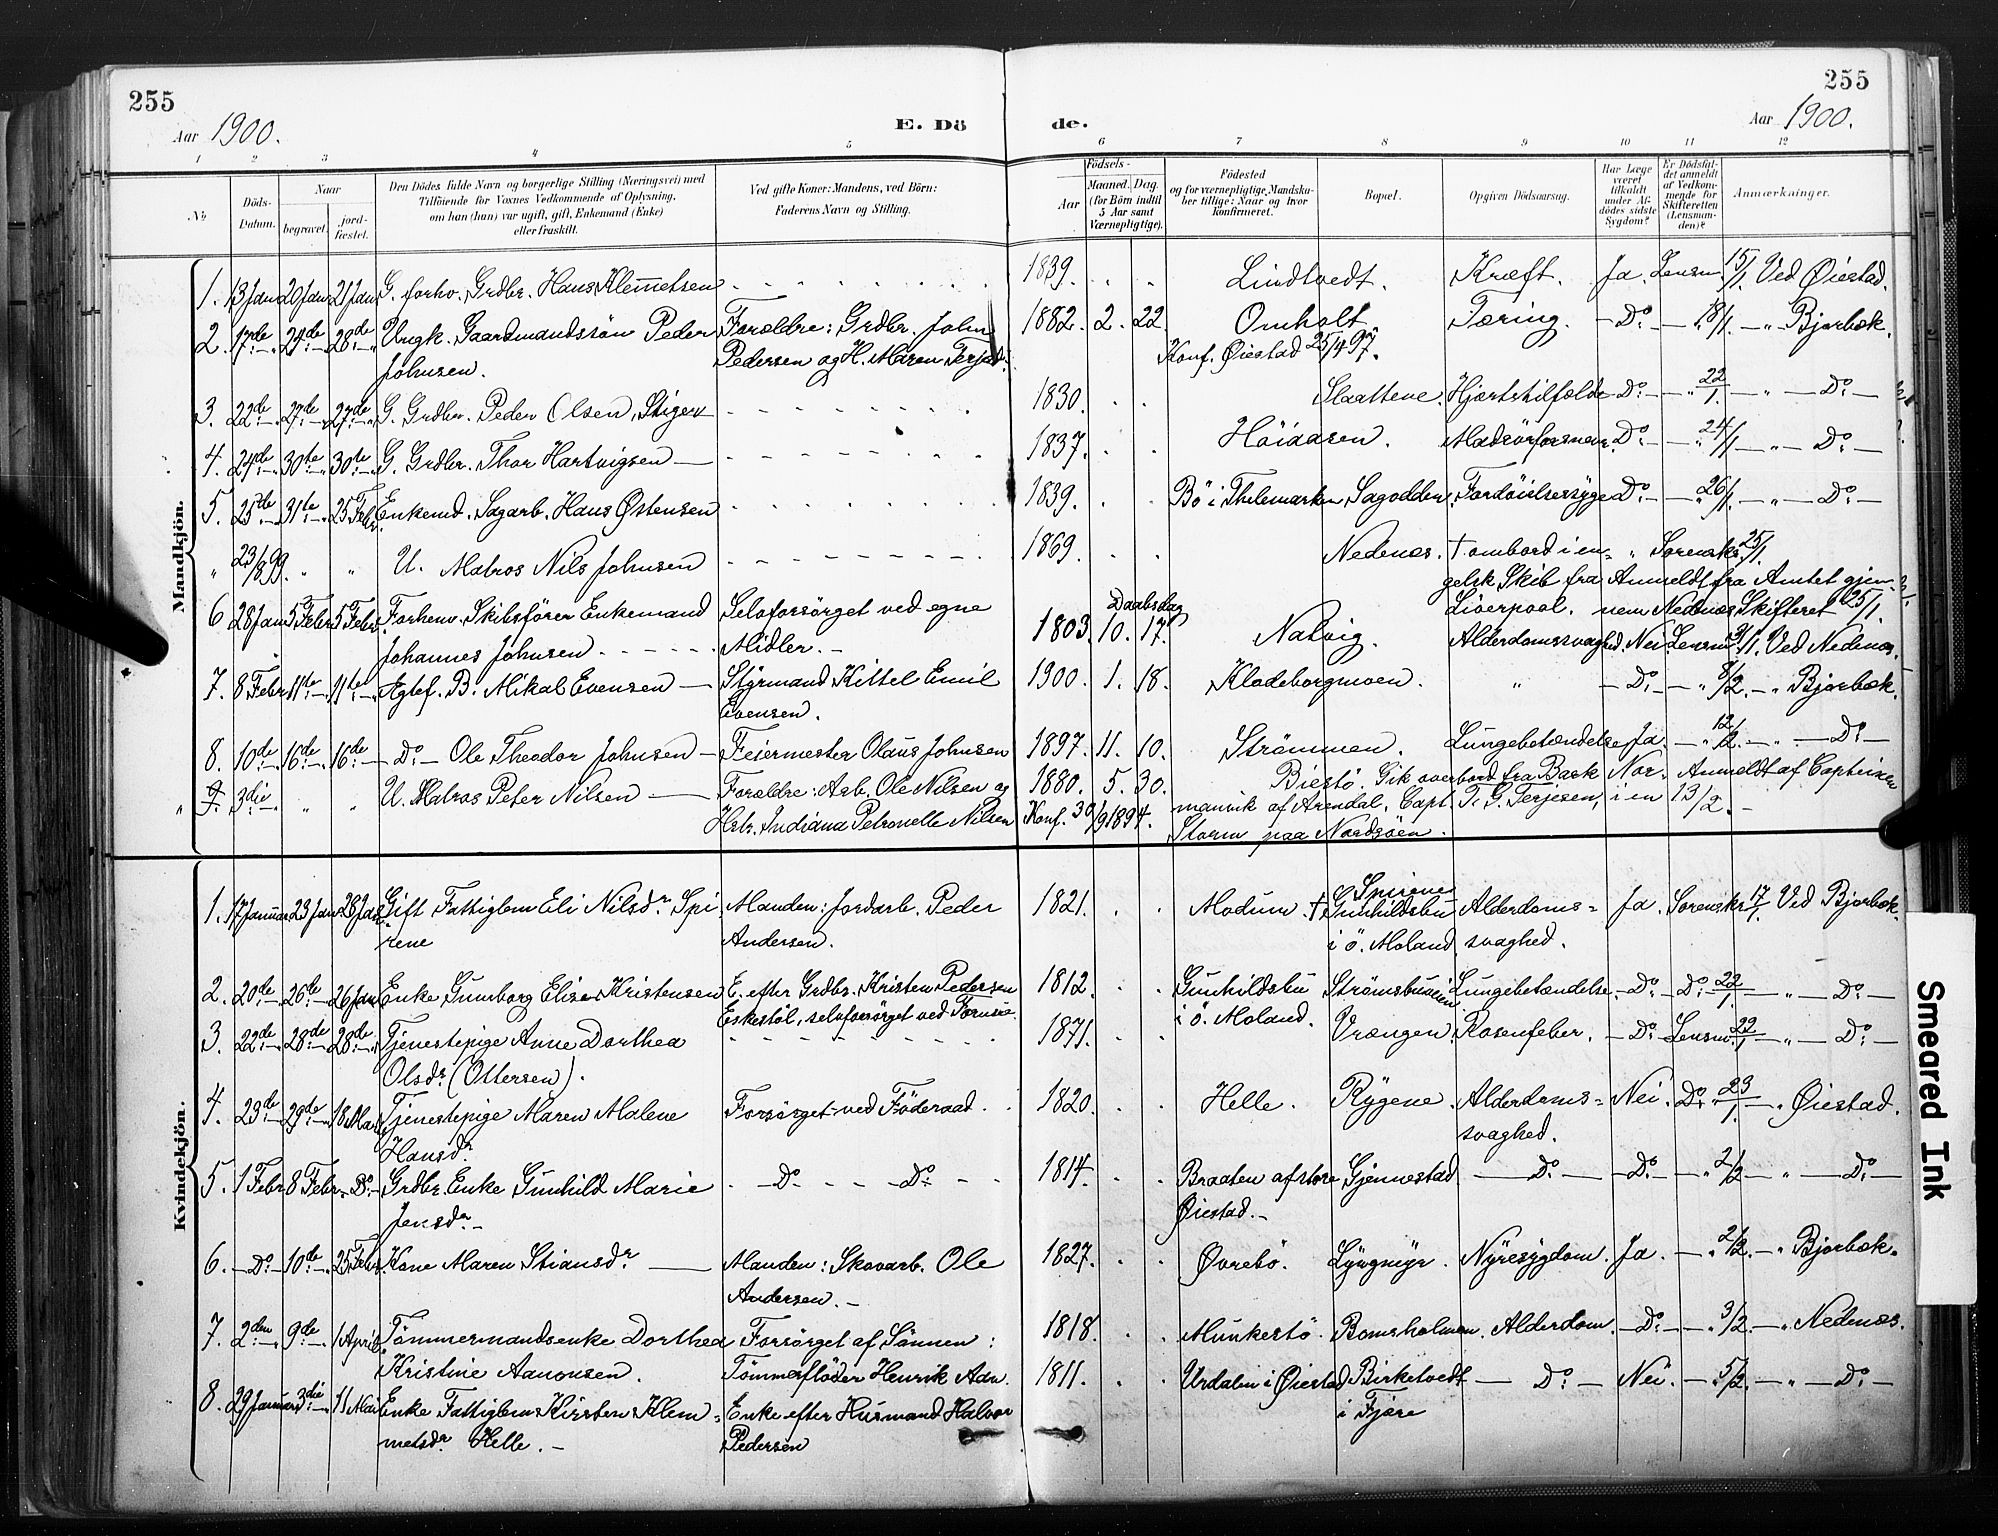 255
255
Aar 1900.
E. Dö
de.
Aar 1900.
1 2 3 4 5 6 7 8 9 10 11 12
№
Döds-Datum.
Naar
begravet.
jord-fæstet.
Den Dödes fulde Navn og borgerlige Stilling (Næringsvei) med
Tilföiende for Voxnes Vedkommende af Oplysning,
om han (hun) var ugift, gift, Enkemand (Enke)
eller fraskilt.
Ved gifte Koner: Mandens, ved Börn:
Faderens Navn og Stilling.
Födsels-
Aar
Maaned. Dag.
(for Börn indtil
5 Aar samt
Værnepligtige).
Födested
og for værnepligtige Mandsku-
ber tillige: Naar og hvor
konfirmeret.
Bopæl.
Opgiven Dödsaarsag.
Har Læge
været
tilkaldt
under Af-
dödes sidste
Sygdom?
Er Dödsfal-
det anmeldt
af Vedkom-
mende for
Skifteretten
(Lensman-
den)?
Anmærkninger.
Mandkjön.
1. 13 Jan 20 Jan 21 Jan G. forhv. Grdbr. Hans Klemetsen 1839. Lindtvedt. Kræft. Ja. Lensm. 15/1. Ved Øiestad.
2. 17de 24de 28de Ungk. Gaardmandssön Peder Forældre: Grdbr. John 1882. 2. 22. Omholt. Tæring. Do 18/1. " Bjorbæk.
Johnsen. Pedersen og H. Maren Terjed: Konf. Øiestad 25/4 97.
3. 22de 27de 27de G. Grdbr. Peder Olsen, Stigen 1830. Slaattene. Hjertetilfælde Do 22/1. " Do
4. 24de 30te 30te G. Grdbr. Thor Hartvigsen 1837. Höiaasen. Madrörforsnevr. Do 24/1 " Do
5. 25de 31te 25 Febr. Enkemd. Sagarb. Hans Østensen 1839. Bö i Thelemarken Sagodden. Fordöielsessyge Do 26/1. " Do
" 23/8 99. " " U. Matros Nils Johnsen 1869. Nedenæs. † ombord i en- " Sorenskr. 25/1.
gelsk Skib fra Anmeldt fra Amtet gjen-
Liverpool. nem Nedenæs Skifteret 25/1.
6 28 Jan 5 Febr 5 Febr. Forhenv. Skibsförer Enkemand Selvforsörget ved egne Daabsdag 1803. 10. 17. Natvig. Alderdomssvaghed. Nei Lensm. 31/1. Ved Nedenæs.
Johannes Johnsen Midler.
7. 8 Febr 11te 11te Egtef. B. Mikal Evensen Styrmand Kittel Emil 1900. 1. 18. Klodeborgmoen. " Do " 8/2. " Bjorbæk.
Evensen.
8. 10de 16de 16de Do Ole Theodor Johnsen Feiermester Olaus Johnsen 1897. 11. 10. Strömmen. Lungebetændelse Ja. " 12/2. " Do
" 3die " " U. Matros Peter Nilsen Forældre: Arb. Ole Nilsen og 1880. 5. 30. Biestö. Gik overbord fra Bark Nor- Anmeldt af Capteinen
Hstr. Indiana Petronelle Nilsen Konf. 30/9 1894. manvik af Arendal, Capt. T. G. Terjesen, i en 13/2.
Storm paa Nordsöen.
Kvindekjön.
1. 17 Januar 23 Jan 28 Jan Gift Fattiglem Eli Nilsdr Spi Manden: Jordarb. Peder 1821. Modum. † Spirene Gunhildsbu Alderdoms= Ja. Sorenskr. 17/1. Ved Bjorbæk.
rene Andersen. i ö. Moland svaghed.
2. 20de 26de 26 Jan Enke Gunborg Elise Kristensen E. efter Grdbr. Kristen Pedersen 1812. Gunhildsbu Strömsbuveien Lungebetændelse. Do Do 22/1 " Do
Eskestöl, selvforsörget ved Formue. i ö. Moland.
3. 22de 28de 28de Tjenestepige Anne Dorthea 1871. Vrængen. Rosenfeber. Do Lensm. 22/1 " Do
Olsdr (Ottersen).
4. 23de 29de 18 Marts Tjenestepige Maren Malene Forsörget ved Föderaad. 1820. Helle. Rygene. Alderdoms= Nei. Do 23/1. " Øiestad.
Hansdr. svaghed.
5. 1 Febr 8 Febr. Do Grdbr. Enke Gunhild Marie Do Do 1814. Braaten af store Gjennestad Do Do " 2/2 " Do
Jensdr. Øiestad.
6. Do 10de 25 Febr. Kone Maren Stiansdr Manden: Skovarb. Ole 1827. Øvrebö. Lyngmyr. Nyresygdom. Ja. " 2/2. " Bjorbæk.
Andersen.
7. 2den 9de 1 April. Tömmermandsenke Dorthea Forsörget af Sönnen: 1818. Munkestö. Bomsholmen. Alderdom. Do 3/2. " Nedenæs.
Kristine Aanonsen. Tömmerflöder Henrik Adn.
8. 29 Januar 3die 11 Mai Enke Fattiglem Kirsten Klem= Enke efter Husmand Halvor 1811. Urdalen i Øiestad Birketvedt Do Nei. " 5/2. " Do
metsdr Helle. Pedersen i Fjære
Smeared Ink